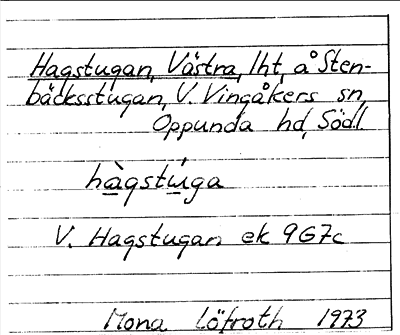 Hagstugan, Västra, lht, å Sten-
bäcksstugan, V. Vingåkers sn,
Oppunda hd, Södl
hàgstúga
V. Hagstugan ek 9G7c
Mona Löfroth 1973